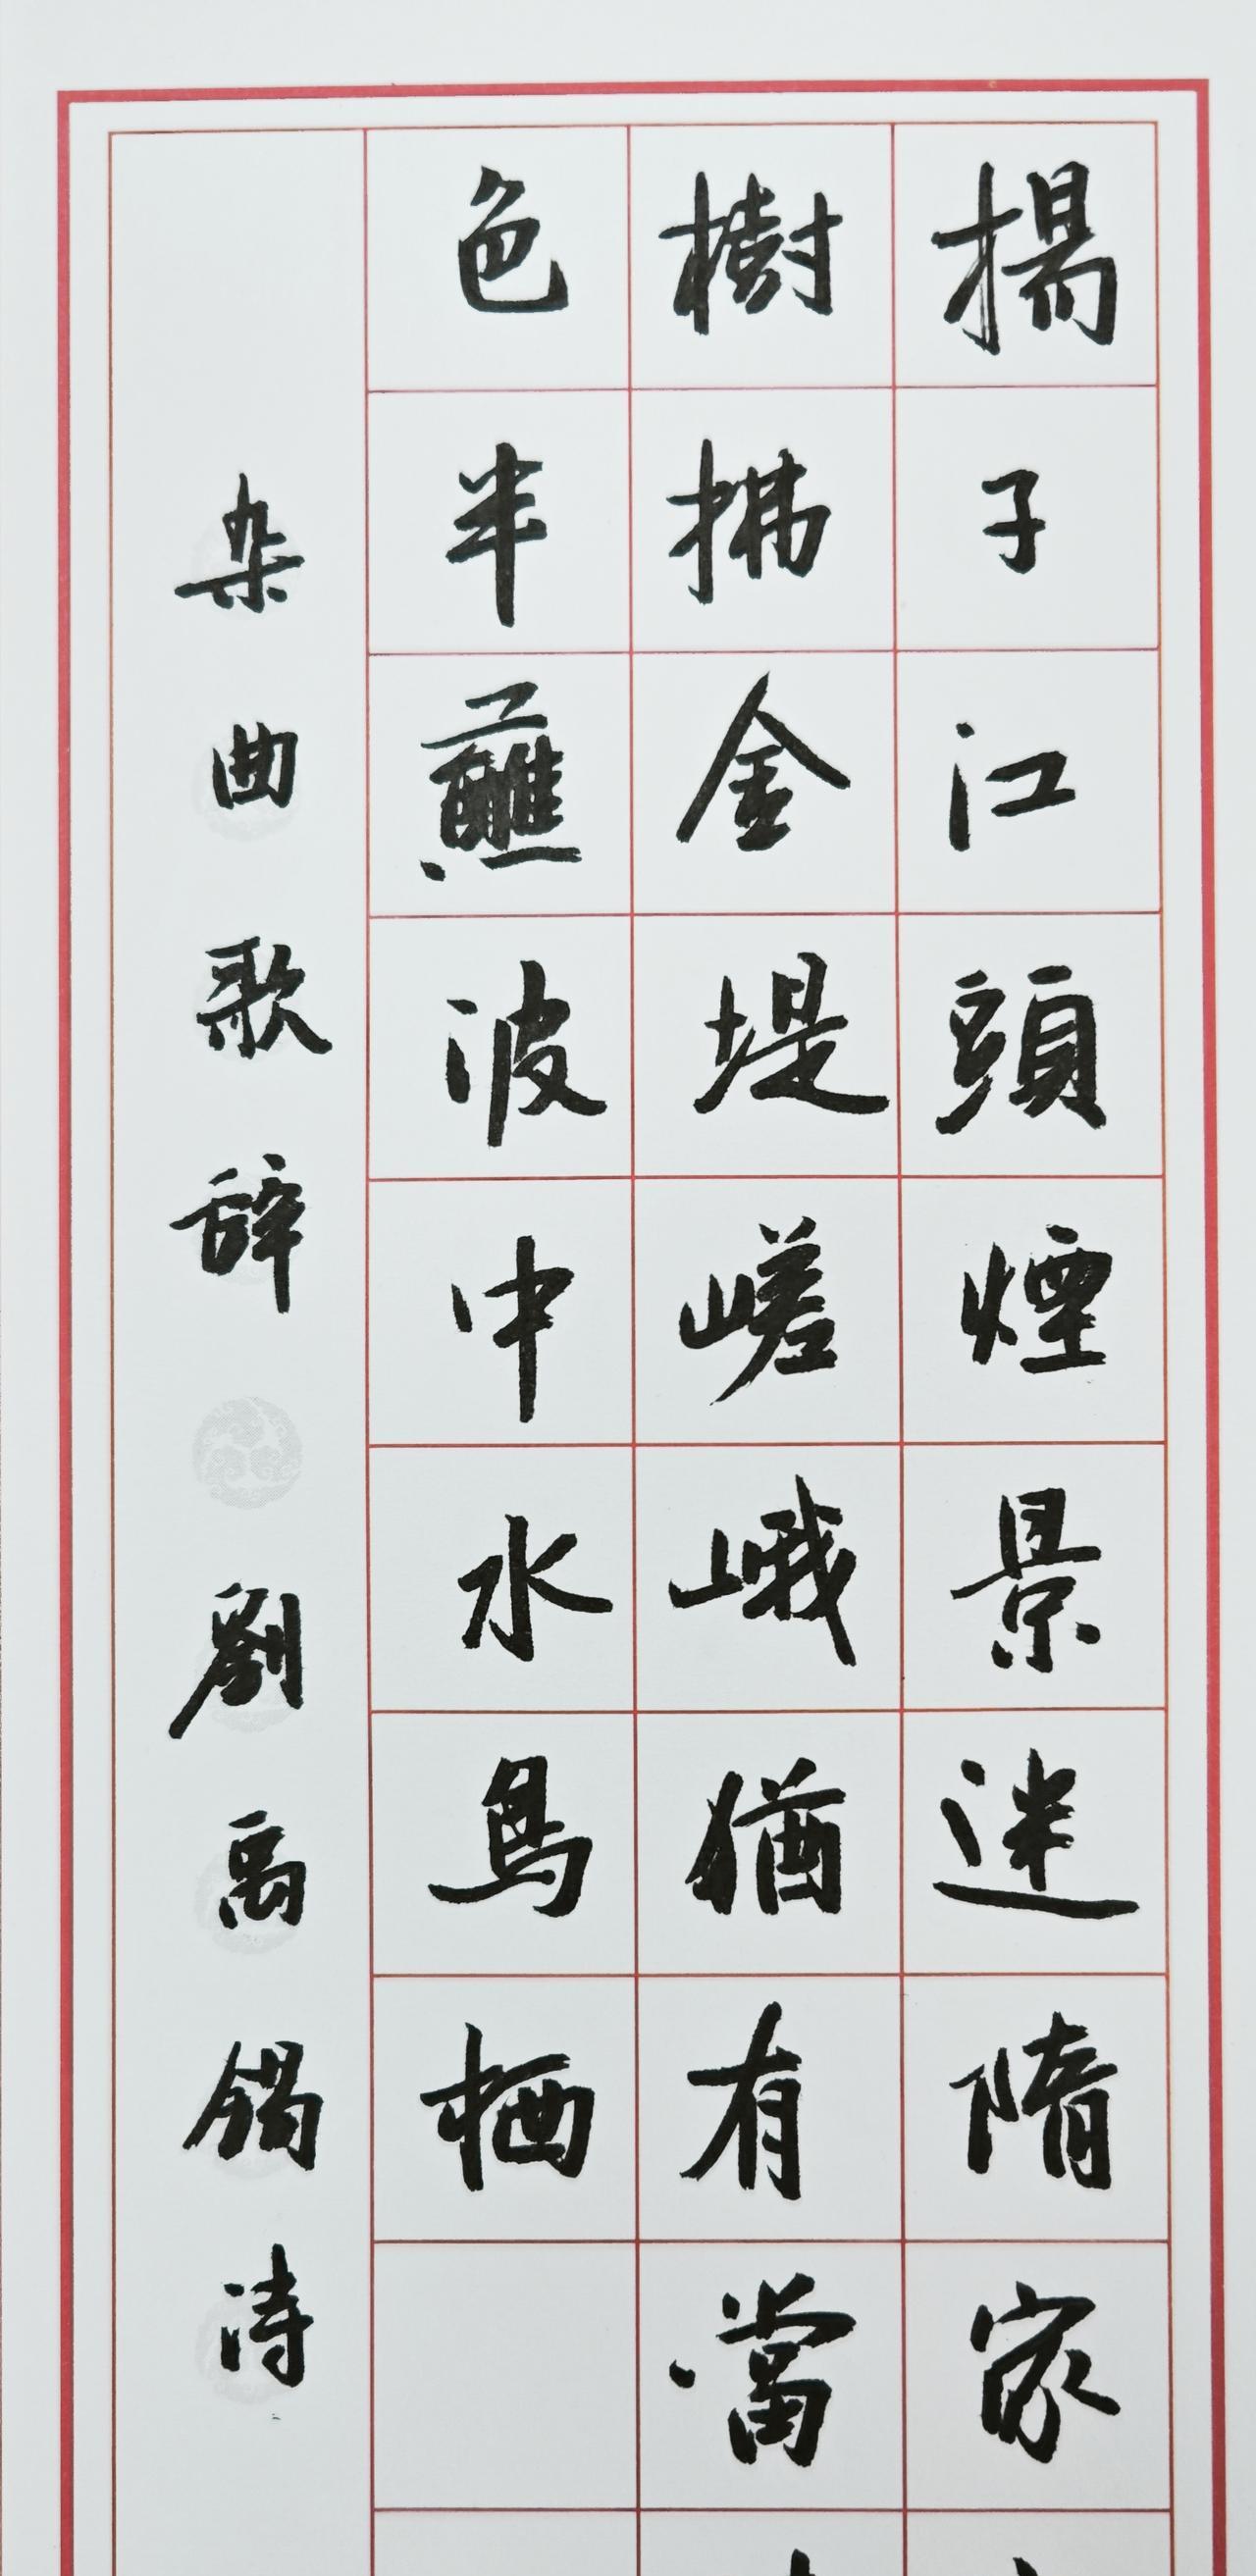 揚子江頭煙景迷隋家
樹拂金堤嵯峨猶有當
色半蘸波中水鳥栖
杂曲歌辞 劉禹錫詩